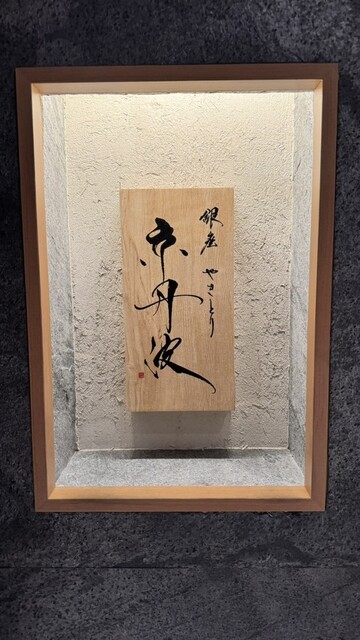 銀座 やきとり
赤丹波